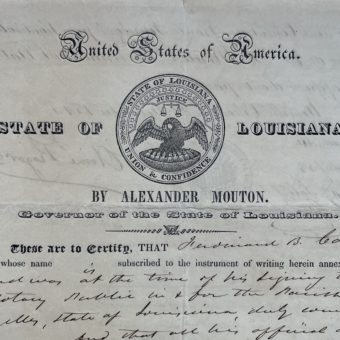 United States of America.
STATE OF LOUISIANA
JUSTICE
UNION & CONFIDENCE
STATE OF LOUISIANA
BY ALEXANDER MOUTON.
Governor of the State of Louisiana.
These are to Certify, THAT Ferdinand B.
whose name is subscribed to the instrument of writing herein annex
was at the time of his signing
Notary Public in & for the Parish
State of Louisiana, duly
and that all his official